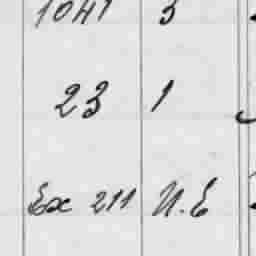 1041 3
23 1
Ex 211 N.E